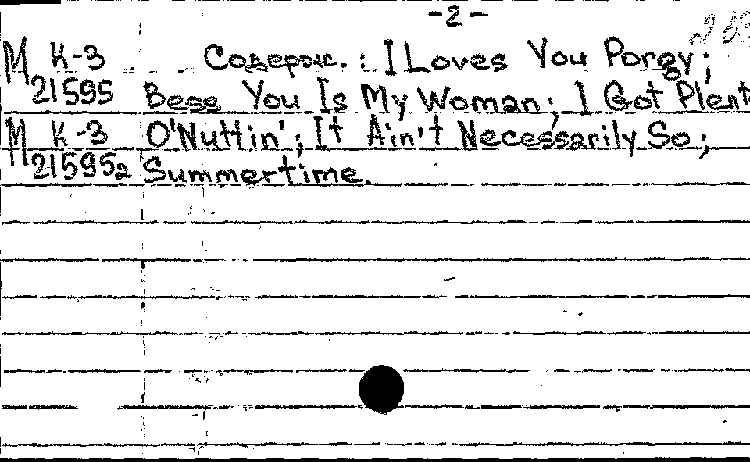 -2-
М К-3 Содерж.: I Loves You Porgy;
21595 Bess You Is My Woman; I Got Plent
М К-3 O'Nuttin'; It Ain't Necessarily So;
21595₂ Summertime.